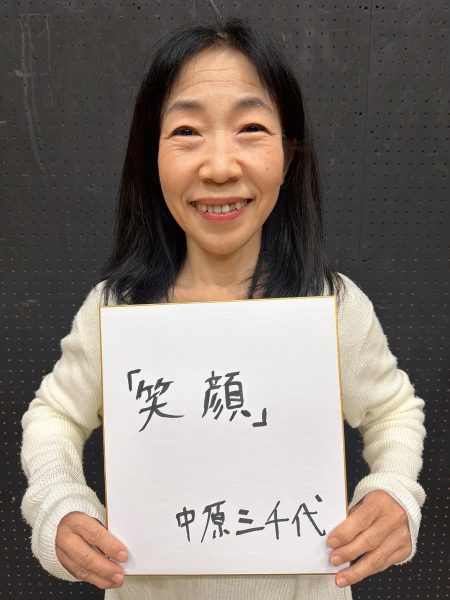 「笑顔」
中原三千代